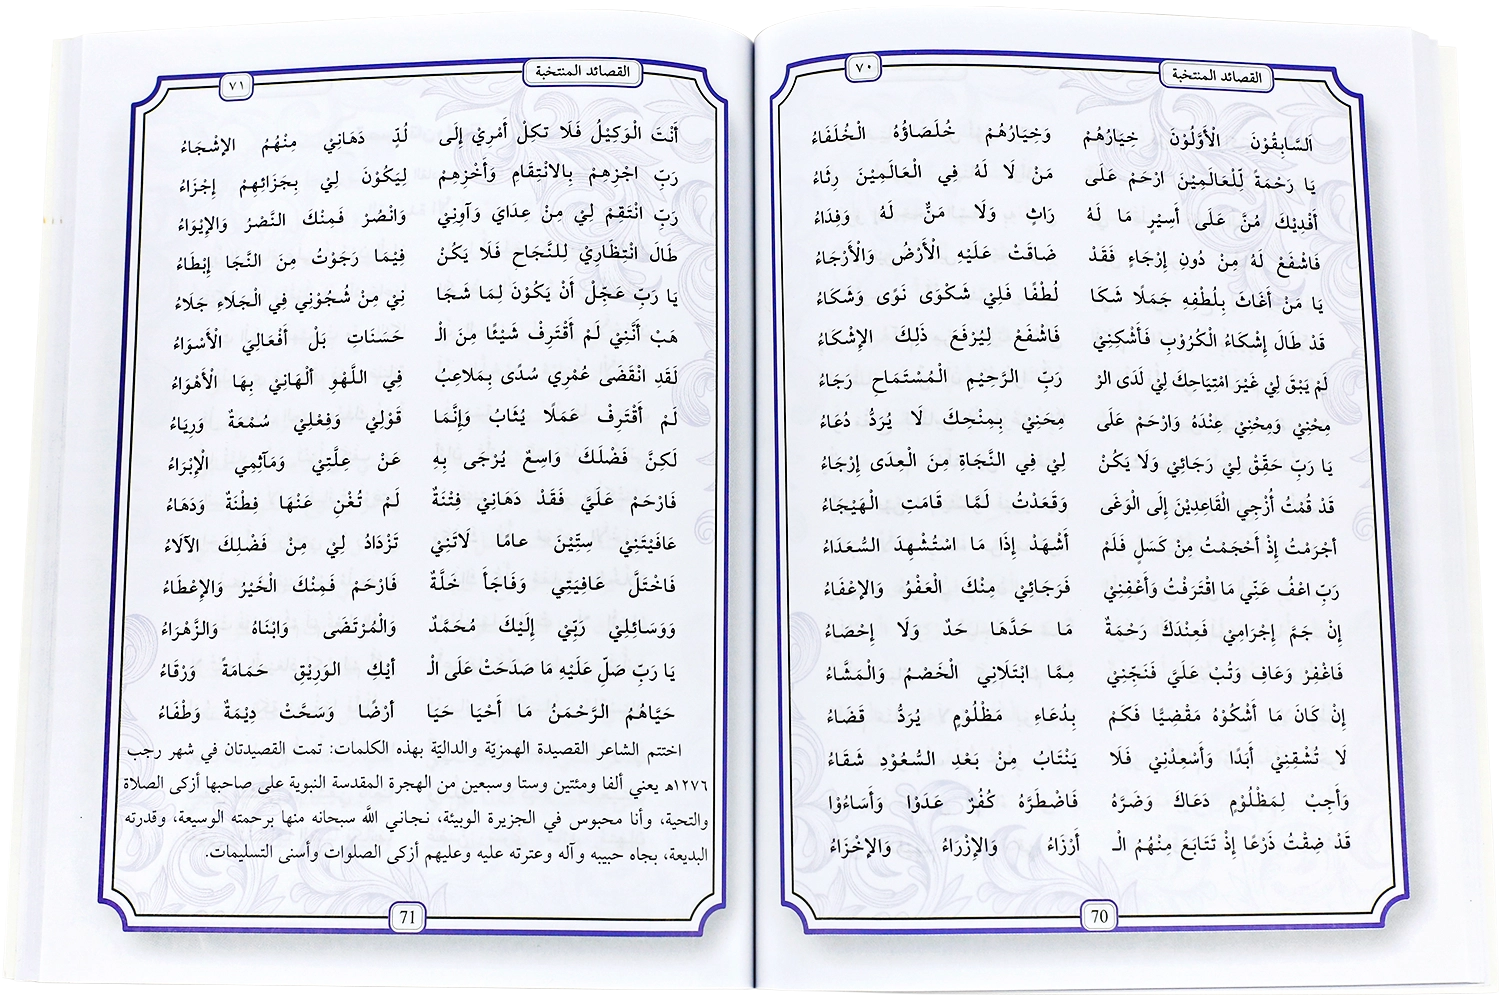 القصائد المنتخبة
٧٠
اَلسَّابِقُوْنَ الْأَوَّلُوْنَ خِيَارُهُمْ وَخِيَارُهُمْ خُلَصَاؤُهُ الْخُلَفَاءُ
يَا رَحْمَةً لِّلْعَالَمِيْنَ ارْحَمْ عَلَى مَنْ لَا لَهُ فِي الْعَالَمِيْنَ رِثَاءُ
أَفْدِيْكَ مُنَّ عَلَى أَسِيْرٍ مَا لَهُ رَاثٍ وَلَا مَنٌّ لَهُ وَفِدَاءُ
فَاشْفَعْ لَهُ مِنْ دُونِ إِرْجَاءٍ فَقَدْ ضَاقَتْ عَلَيْهِ الْأَرْضُ وَالْأَرْجَاءُ
يَا مَنْ أَغَاثَ بِلُطْفِهِ جَمَلًا شَكَا لُطْفًا فَلِيْ شَكْوَى نَوًى وَشَكَاءُ
قَدْ طَالَ إِشْكَاءُ الْكُرُوْبِ فَأَشْكِنِيْ فَاشْفَعْ لِيُرْفَعَ ذٰلِكَ الإِشْكَاءُ
لَمْ يَبْقَ لِيْ غَيْرَ امْتِيَاحِكَ لِيْ لَدَى الرْ رَبِّ الرَّحِيْمِ الْمُسْتَمَاحِ رَجَاءُ
مِحْنِيْ وَمِحْنِيْ عِنْدَهُ وَارْحَمْ عَلَى مِحَنِيْ بِمِنْحِكَ لَا يُرَدُّ دُعَاءُ
يَا رَبِّ حَقِّقْ لِيْ رَجَائِيْ وَلَا يَكُنْ لِيْ فِي النَّجَاةِ مِنَ الْعِدَى إِرْجَاءُ
قَدْ قُمْتُ أُزْجِي الْقَاعِدِيْنَ إِلَى الْوَغَى وَقَعَدْتُ لَمَّا قَامَتِ الْهَيْجَاءُ
أَجْرَمْتُ إِذْ أَحْجَمْتُ مِنْ كَسَلٍ فَلَمْ أَشْهَدْ إِذَا مَا اسْتُشْهِدَ السُّعَدَاءُ
رَبِّ اعْفُ عَنِّي مَا اقْتَرَفْتُ وَأَعْفِنِيْ فَرَجَائِيْ مِنْكَ الْعَفْوُ وَالإِعْفَاءُ
إِنْ جَمَّ إِجْرَامِيْ فَعِنْدَكَ رَحْمَةٌ مَا حَدَّهَا حَدٌ وَلَا إِحْصَاءُ
فَاغْفِرْ وَعَافِ وَتُبْ عَلَيَّ فَنَجِّنِيْ مِمَّا ابْتَلَانِي الْخَصْمُ وَالْمَشَّاءُ
إِنْ كَانَ مَا أَشْكُوْهُ مَقْضِيًّا فَكَمْ بِدُعَاءِ مَظْلُوْمٍ يُرَدُّ قَضَاءُ
لَا تُشْقِنِيْ أَبَدًا وَأَسْعِدْنِيْ فَلَا يَنْتَابُ مِنْ بَعْدِ السُّعُوْدِ شَقَاءُ
وَأَجِبْ لِمَظْلُوْمٍ دَعَاكَ وَضَرَّهُ فَاضْطَرَّهُ كُفْرٌ عَدَوْا وَأَسَاءُوْا
قَدْ ضِقْتُ ذَرْعًا إِذْ تَتَابَعَ مِنْهُمُ الْـ أَرْزَاءُ وَالإِزْرَاءُ وَالإِخْزَاءُ
70
القصائد المنتخبة
٧١
أَنْتَ الْوَكِيْلُ فَلَا تَكِلْ أَمْرِيْ إِلَى لُدٍّ دَهَانِيْ مِنْهُمُ الإِشْجَاءُ
رَبِّ اجْزِهِمْ بِالانْتِقَامِ وَأَخْزِهِمْ لِيَكُوْنَ لِيْ بِجَزَائِهِمْ إِجْزَاءُ
رَبِّ انْتَقِمْ لِيْ مِنْ عِدَايَ وَآوِنِيْ وَانْصُرْ فَمِنْكَ النَّصْرُ وَالإِيْوَاءُ
طَالَ انْتِظَارِيْ لِلنَّجَاحِ فَلَا يَكُنْ فِيْمَا رَجَوْتُ مِنَ النَّجَا إِبْطَاءُ
يَا رَبِّ عَجِّلْ أَنْ يَكُوْنَ لِمَا شَجَا نِيْ مِنْ شُجُوْنِي فِي الْجَلَاءِ جَلَاءُ
هَبْ أَنَّنِيْ لَمْ أَقْتَرِفْ شَيْئًا مِنَ الْـ حَسَنَاتِ بَلْ أَفْعَالِيَ الْأَسْوَاءُ
لَقَدِ انْقَضَى عُمْرِي سُدًى بِمَلَاعِبُ فِي اللَّهْوِ أَلْهَانِيْ بِهَا الْأَهْوَاءُ
لَمْ أَقْتَرِفْ عَمَلًا يُثَابُ وَإِنَّمَا قَوْلِيْ وَفِعْلِيْ سُمْعَةٌ وَرِيَاءُ
لَكِنَّ فَضْلَكَ وَاسِعٌ يُرْجَى بِهِ عَنْ عِلَّتِيْ وَمَآثِمِي الْإِبْرَاءُ
فَارْحَمْ عَلَيَّ فَقَدْ دَهَانِيْ فِتْنَةٌ لَمْ تُغْنِ عَنْهَا فِطْنَةٌ وَدَهَاءُ
عَافَيْتَنِيْ سِتِّيْنَ عامًا لَاتَنِيْ تَزْدَادُ لِيْ مِنْ فَضْلِكَ الآلَاءُ
فَاخْتَلَّ عَافِيَتِي وَفَاجَأَ خَلَّةٌ فَارْحَمْ فَمِنْكَ الْخَيْرُ وَالإِعْطَاءُ
وَوَسَائِلِيْ رَبِّيْ إِلَيْكَ مُحَمَّدٌ وَالْمُرْتَضَى وَابْنَاهُ وَالزَّهْرَاءُ
يَا رَبِّ صَلِّ عَلَيْهِ مَا صَدَحَتْ عَلَى الْـ أَيْكِ الوَرِيْقِ حَمَامَةٌ وَرْقَاءُ
حَيَّاهُمُ الرَّحْمَنُ مَا أَحْيَا حَيَا أَرْضًا وَسَحَّتْ دِيْمَةٌ وَطْفَاءُ
اختتم الشاعر القصيدة الهمزيّة والداليّة بهذه الكلمات: تمت القصيدتان في شهر رجب
١٢٧٦هـ يعني ألفا ومئتين وستا وسبعين من الهجرة المقدسة النبوية على صاحبها أزكى الصلاة
والتحية، وأنا محبوس في الجزيرة الوبيئة، نجاني الله سبحانه منها برحمته الوسيعة، وقدرته
البديعة، بجاه حبيبه وآله وعترته عليه وعليهم أزكى الصلوات وأسنى التسليمات.
71